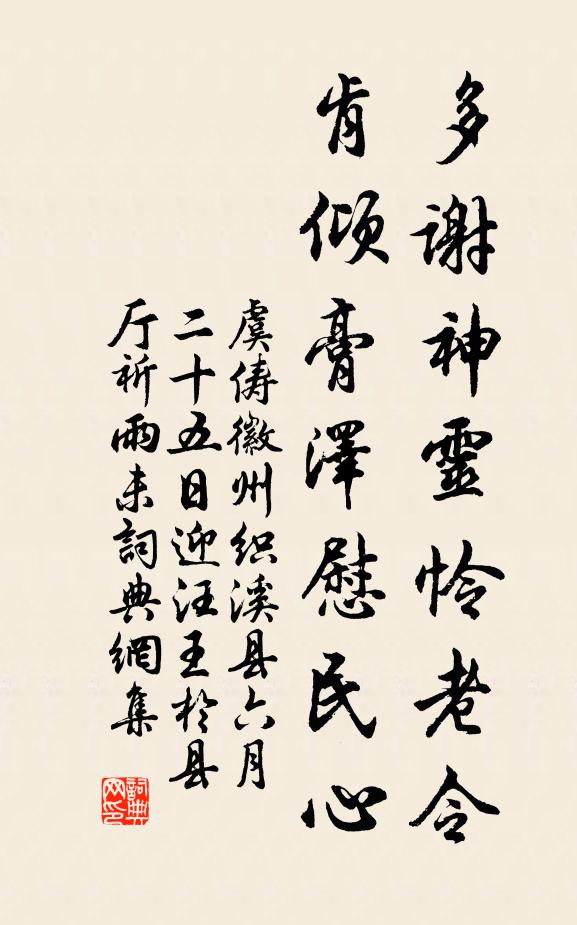 多謝神靈怜老令
肯傾膏澤慰民心
虞儔徽州织溪县六月
二十五日迎汪王於县
厅祈雨未詞典網集
詞典网印